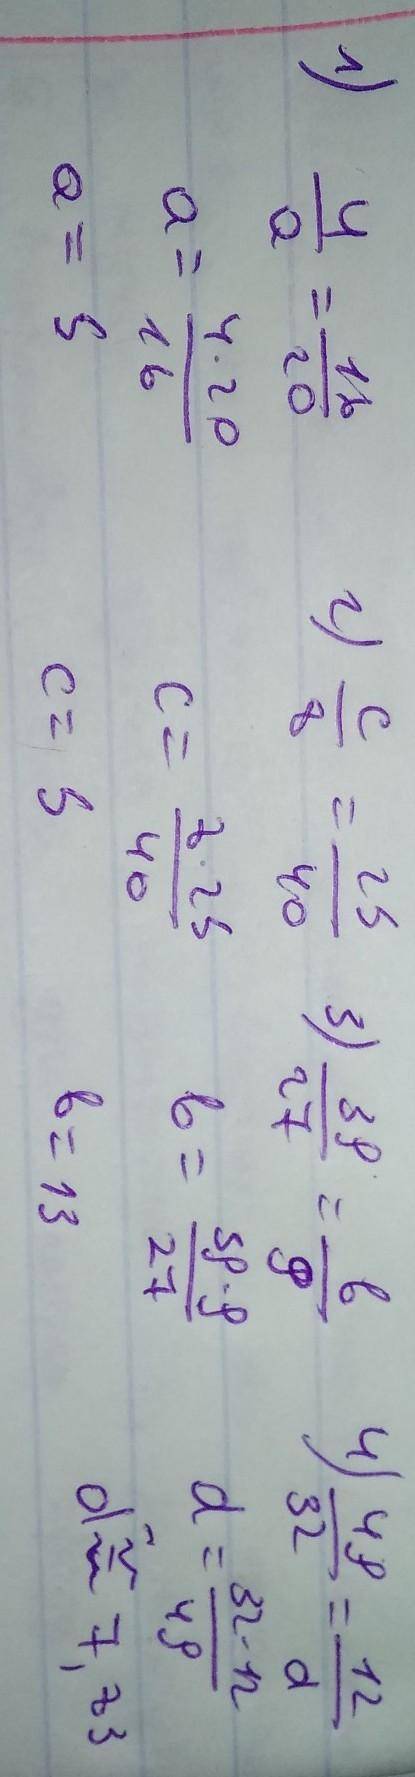 1) 4/a = 16/20
a = 4·20/16
a = 5
2) c/8 = 25/40
c = 8·25/40
c = 5
3) 39/27 = b/9
b = 39·9/27
b = 13
4) 49/32 = 12/d
d = 32·12/49
d ≈ 7,83